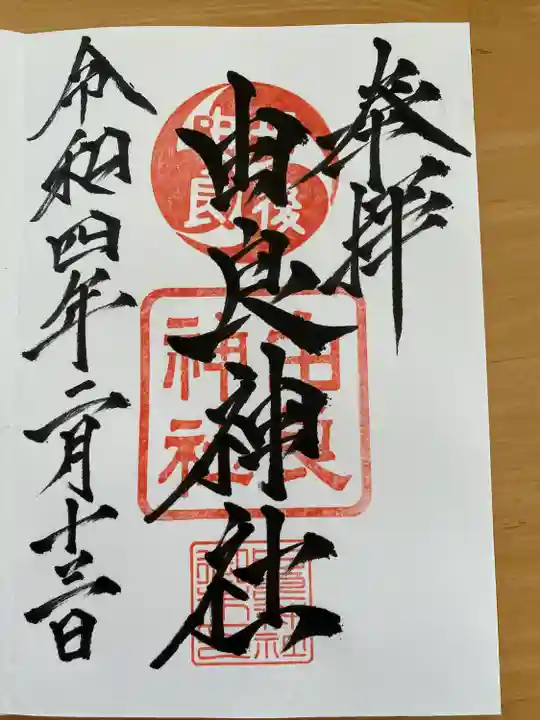 奉拝
丹後
由良
由良
神社
由良神社
令和四年二月十三日